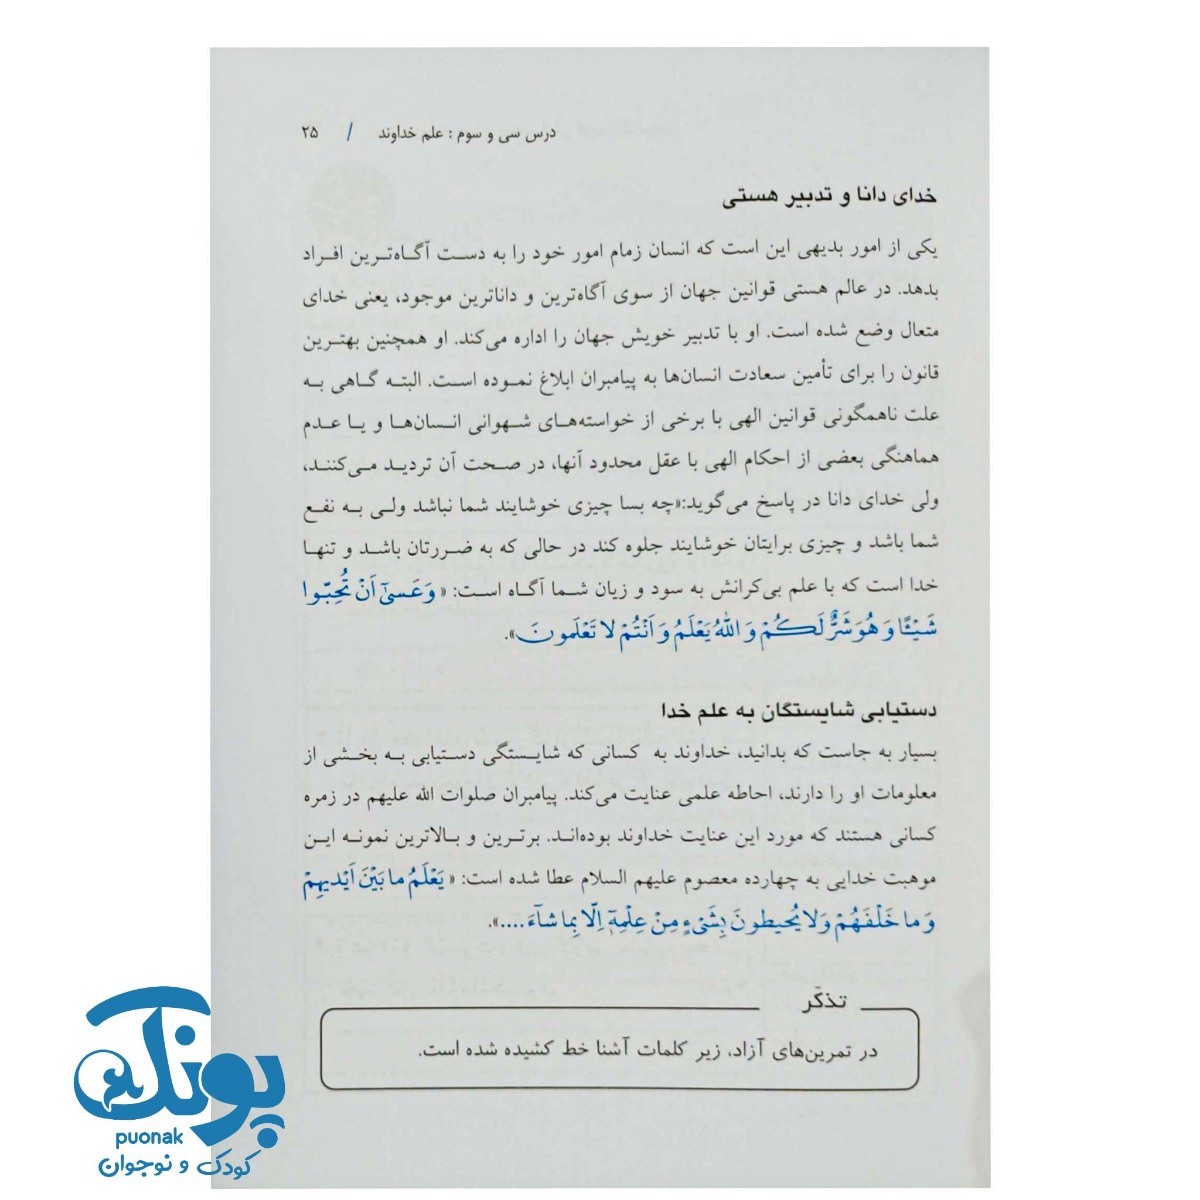 درس سی و سوم : علم خداوند / ۲۵
خدای دانا و تدبیر هستی
یکی از امور بدیهی این است که انسان زمام امور خود را به دست آگاه‌ترین افراد
بدهد. در عالم هستی قوانین جهان از سوی آگاه‌ترین و داناترین موجود، یعنی خدای
متعال وضع شده است. او با تدبیر خویش جهان را اداره می‌کند. او همچنین بهترین
قانون را برای تأمین سعادت انسان‌ها به پیامبران ابلاغ نموده است. البته گاهی به
علت ناهمگونی قوانین الهی با برخی از خواسته‌های شهوانی انسان‌ها و یا عدم
هماهنگی بعضی از احکام الهی با عقل محدود آنها، در صحت آن تردید می‌کنند،
ولی خدای دانا در پاسخ می‌گوید:«چه بسا چیزی خوشایند شما نباشد ولی به نفع
شما باشد و چیزی برایتان خوشایند جلوه کند در حالی که به ضررتان باشد و تنها
خدا است که با علم بی‌کرانش به سود و زیان شما آگاه است: « وَ عَسىٰٓ اَنْ تُحِبّوا
شَيْئًا وَ هُوَ شَرٌّ لَكُمْ وَ اللّٰهُ يَعْلَمُ وَ اَنْتُمْ لا تَعْلَمونَ».
دستیابی شایستگان به علم خدا
بسیار به جاست که بدانید، خداوند به کسانی که شایستگی دستیابی به بخشی از
معلومات او را دارند، احاطه علمی عنایت می‌کند. پیامبران صلوات الله علیهم در زمره
کسانی هستند که مورد این عنایت خداوند بوده‌اند. برترین و بالاترین نمونه این
موهبت خدایی به چهارده معصوم علیهم السلام عطا شده است: « يَعْلَمُ ما بَيْنَ اَيْديهِمْ
وَ ما خَلْفَهُمْ وَ لا يُحيطونَ بِشَىْءٍ مِنْ عِلْمِهٓ اِلّا بِما شآءَ ....».
تذکّر
در تمرین‌های آزاد، زیر کلمات آشنا خط کشیده شده است.
پونک
puonak
کودک و نوجوان